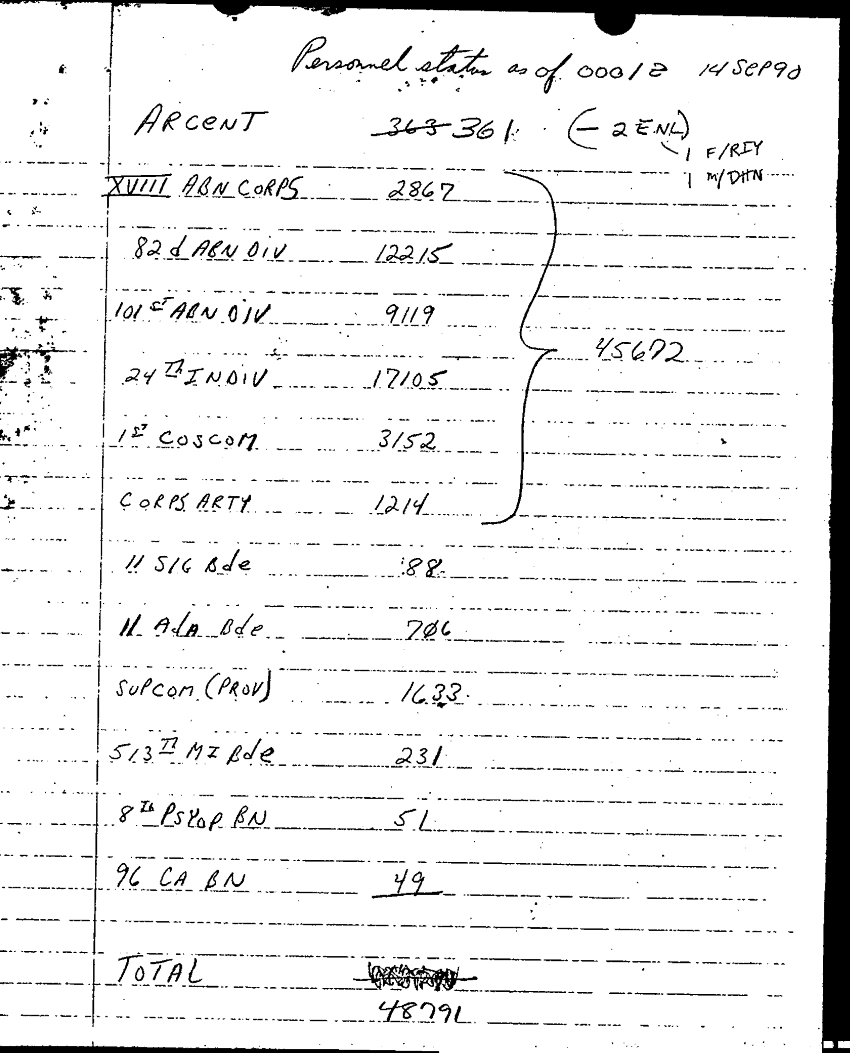 Personnel status as of 0001Z 14 SEP 90
ARCENT 363 361 (- 2 ENL)
1 F/RIY
1 M/DHN
XVIII ABN CORPS 2867
82d ABN DIV 12215
101ST ABN DIV 9119
45672
24TH INDIV 17105
1ST COSCOM 3152
CORPS ARTY 1214
11 SIG Bde 88
11 AdA Bde 706
SUPCOM (PROV) 1633
513TH MI Bde 231
8TH PSYOP BN 51
96 CA BN 49
TOTAL
48791